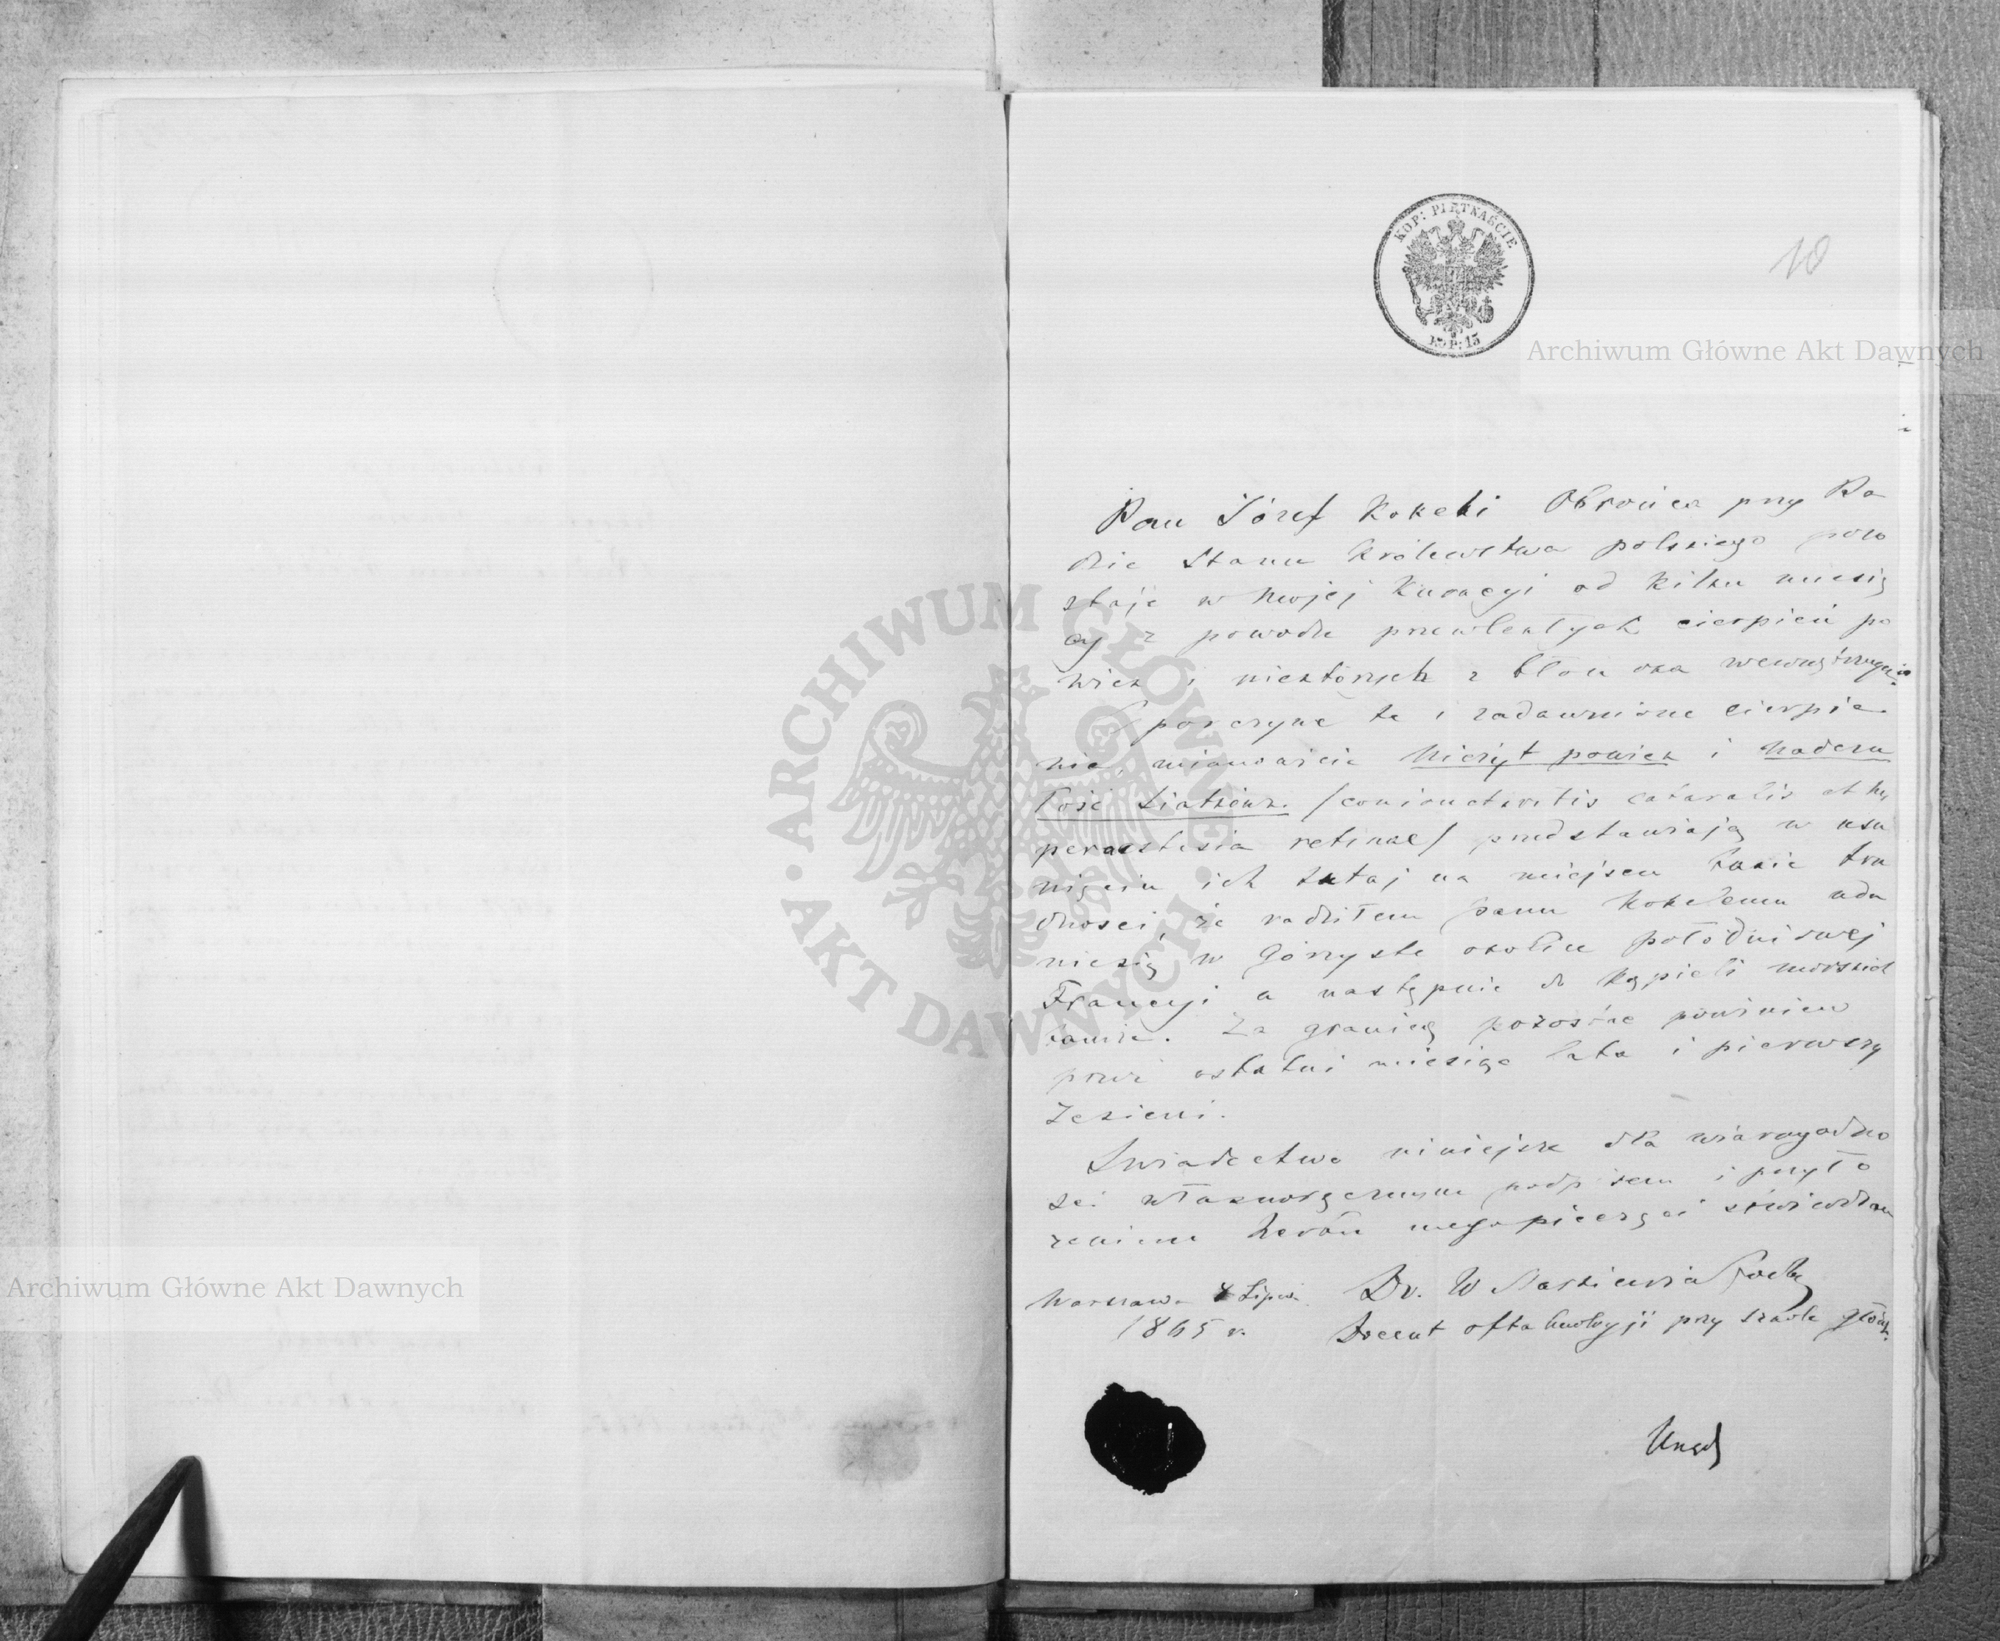 KOP: PIĘTNAŚCIE
KOP: 15
10
Archiwum Główne Akt Dawnych
Pan Józef Kokeli Obrońca przy Ra
dzie Stanu Królewstwa polskiego pozo
staje w mojej Kuracyi od kilku miesię
cy z powodu przewlekłych cierpień po
wiek i niektórych z błon oka wewnętrznych.
Uporczywe te i zadawnione cierpie
nia, mianowicie nieżyt powiek i nadczu
łość siatkówk. /conionctivitis cataralis et hy
peraestesia retinae/ przedstawiają w usu
nięciu ich tutaj na miejscu takie tru
dności, że radziłem panu Kokelemu uda
nie się w górzyste okolice połódniowej
Francyi a następnie do kąpieli morskich
tamże. Za granicą pozostać powinien
przez ostatni miesiąc lata i pierwszy
Jesieni.
Świadectwo niniejsze dla wiarogodno
ści własnoręcznym podpisem i przyło
żeniem herbu mego pieczęci stwierdzam
Warszawa 8 Lipca Dr. W
1865 r. Docent oftalmologji przy szkole główn.
ARCHIWUM GŁÓWNE AKT DAWNYCH
Archiwum Główne Akt Dawnych